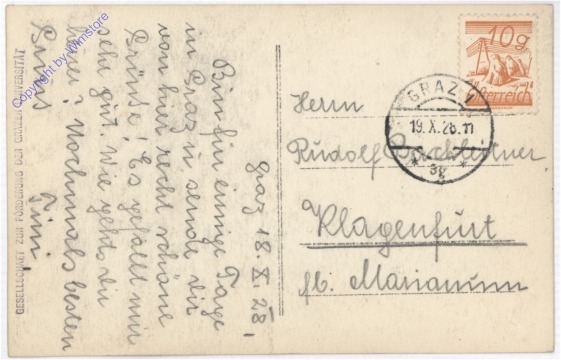 Graz 18. X. 28.
Bin für einige Tage
in Graz u. sende dir
von hier recht schöne
Grüsse! Es gefällt mir
sehr gut. Wie gehts dir
immer? Nochmals besten
Gruss
Timi
GESELLSCHAFT ZUR FÖRDERUNG DER GRAZER UNIVERSITÄT
Copyright by Winstore
10 g
Österreich
GRAZ 1
19.X.28.11
* 3g *
Herrn
Rudolf
Klagenfurt
Marianum